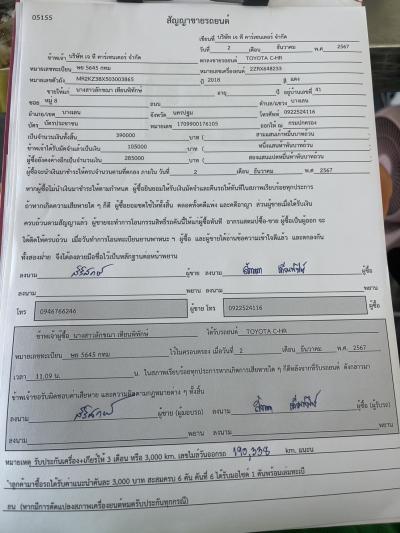 05155
สัญญาขายรถยนต์
เขียนที่ บริษัท เจ ที คาร์เซนเตอร์ จำกัด
วันที่ 2 เดือน ธันวาคม พ.ศ. 2567
ข้าพเจ้า บริษัท เจ ที คาร์เซนเตอร์ จำกัด ตกลงขายรถยนต์ TOYOTA C-HR
หมายเลขทะเบียน พย 5645 กทม หมายเลขเครื่องยนต์ 2ZRX648233
หมายเลขตัวถัง MR2KZ3BX503003865 ปี 2018 สี แดง
ขายให้แก่ นางสาวลักขณา เทียนพิทักษ์ อายุ ปี อยู่บ้านเลขที่ 41
ซอย หมู่ 8 ถนน ตำบล/แขวง บางเลน
อำเภอ/เขต บางเลน จังหวัด นครปฐม โทรศัพท์ 0922524116
บัตร บัตรประชาชน หมายเลข 1709900176105 ออกให้ ณ กรมปกครอง
เป็นจำนวนเงินทั้งสิ้น 390000 บาท ( สามแสนเก้าหมื่นบาทถ้วน
ข้าพเจ้าได้รับมัดจำแล้วเป็นเงิน 105000 บาท ( หนึ่งแสนห้าพันบาทถ้วน
ผู้ซื้อยังคงค้างอีกเป็นจำนวนเงิน 285000 บาท ( สองแสนแปดหมื่นห้าพันบาทถ้วน
ผู้ซื้อจะนำเงินมาชำระให้ครบจำนวนตามที่ตกลง ภายใน วันที่ 2 เดือน ธันวาคม พ.ศ. 2567
หากผู้ซื้อไม่นำเงินมาชำระให้ตามกำหนด ผู้ซื้อยินยอมให้ริบเงินมัดจำและคืนรถให้ทันทีในสภาพเรียบร้อยทุกประการ
ถ้าหากเกิดความเสียหายใด ๆ ก็ดี ผู้ซื้อยอมชดใช้ให้ทั้งสิ้น ตลอดทั้งคดีแพ่ง และคดีอาญา ส่วนผู้ขายเมื่อได้รับเงิน
ครบถ้วนตามสัญญาแล้ว ผู้ขายจะทำการโอนกรรมสิทธิ์รถคันนี้ให้แก่ผู้ซื้อทันที อากรแสตมป์ซื้อ-ขาย ผู้ซื้อเป็นผู้ออก จะ
ได้คิดให้ครบถ้วน เมื่อวันทำการโอนทะเบียนยานพาหนะ ฯ ผู้ซื้อ และผู้ขายได้อ่านข้อความเข้าใจดีแล้ว และตกลงกัน
ทั้งสองฝ่าย จึงได้ลงลายมือชื่อไว้เป็นหลักฐานต่อหน้าพยาน
ลงนาม ผู้ขาย ลงนาม ผู้ซื้อ
ลงนาม พยาน ลงนาม พยาน
โทร 0946766246 ผู้ขาย โทร 0922524116 ผู้ซื้อ
ข้าพเจ้าผู้ซื้อ นางสาวลักขณา เทียนพิทักษ์ ได้รับรถยนต์ TOYOTA C-HR
หมายเลขทะเบียน พย 5645 กทม ไว้ในครอบครอง เมื่อวันที่ 2 เดือน ธันวาคม พ.ศ. 2567
เวลา 11.09 น. ในสภาพเรียบร้อยทุกประการหากเกิดการเสียหายใด ๆ ก็ดีหลังจากที่รับรถยนต์ ดังกล่าวมา
ข้าพเจ้าขอรับผิดชอบค่าเสียหาย และความผิดตามกฎหมายต่าง ๆ ทั้งสิ้น
ลงนาม ผู้ขาย (ผู้มอบรถ) ลงนาม ผู้ซื้อ (ผู้รับรถ)
ลงนาม พยาน ลงนาม พยาน
หมายเหตุ รับประกันเครื่อง+เกียร์ให้ 3 เดือน หรือ 3,000 km. เลขไมล์วันออกรถ 190,338 km. แนะนำ
ลูกค้ามาซื้อรถได้รับค่าแนะนำคันละ 3,000 บาท สะสมครบ 6 คัน คันที่ 6 ได้รับมอไซค์ 1 คันพร้อมเล่มทะเบี
ยน (หากมีการดัดแปลงสภาพเครื่องยนต์หมดรับประกันทุกกรณี)